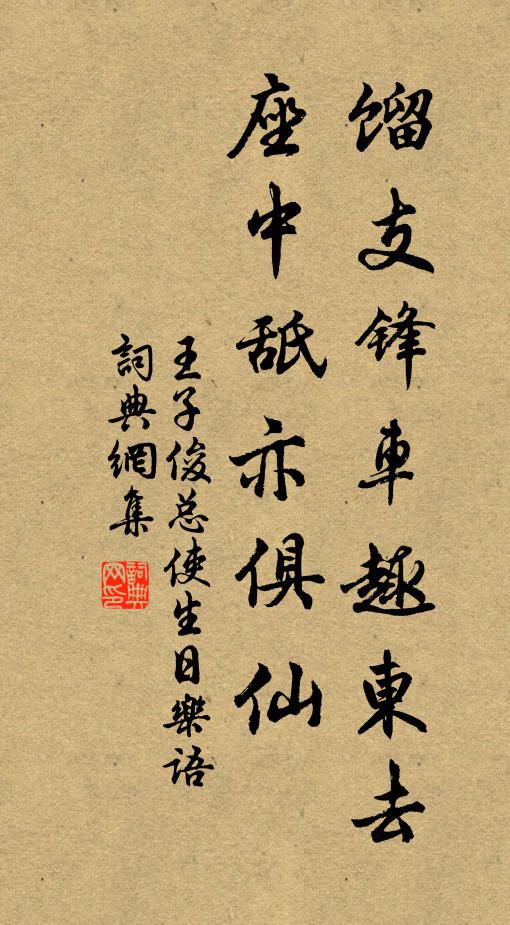 馏支锋車趣東去
座中舐亦俱仙
王子俊总使生日樂語
詞典網集
詞典网印